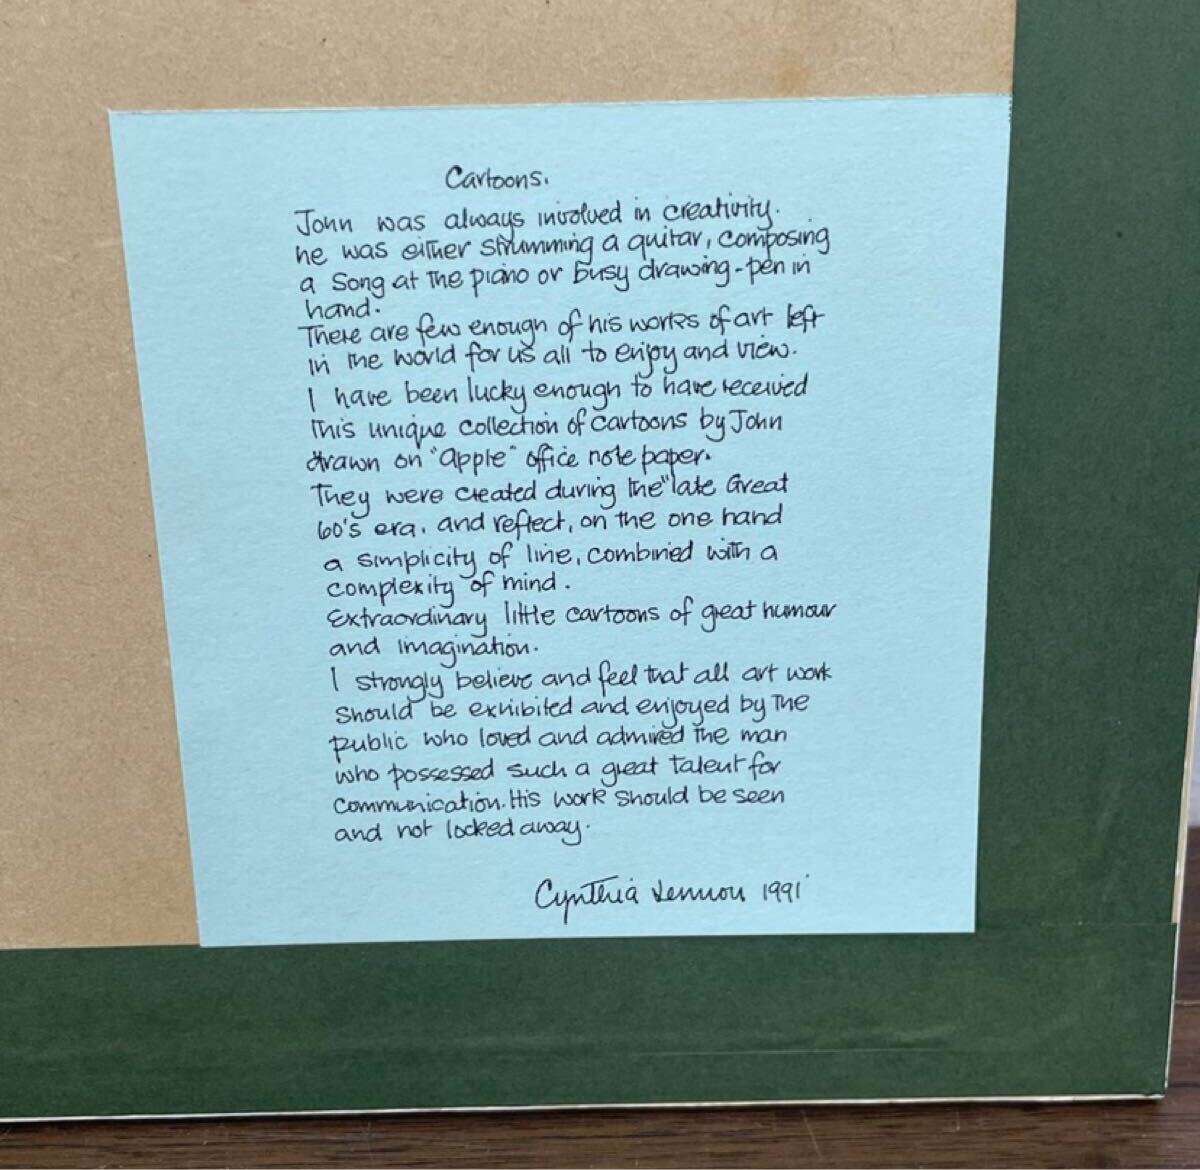 Cartoons.
John was always involved in creativity.
he was either strumming a guitar, composing
a song at the piano or busy drawing-pen in
hand.
There are few enough of his works of art left
in the world for us all to enjoy and view.
I have been lucky enough to have received
this unique collection of cartoons by John
drawn on "apple" office note paper.
They were created during the "late Great
60's era. and reflect, on the one hand
a simplicity of line, combined with a
complexity of mind.
Extraordinary little cartoons of great humour
and imagination.
I strongly believe and feel that all art work
should be exhibited and enjoyed by the
public who loved and admired the man
who possessed such a great talent for
communication. His work should be seen
and not locked away.
Cynthia Lennon 1991